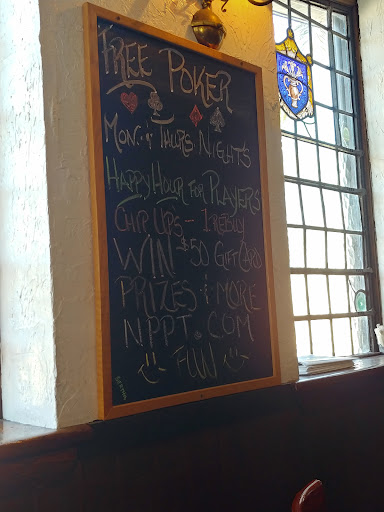 FREE POKER
MON. & THURS NIGHTS
HAPPY HOUR FOR PLAYERS
CHIP UPS - 1 REBUY
WIN $50 GIFT CARD
PRIZES & MORE
NPPT.COM
FUN